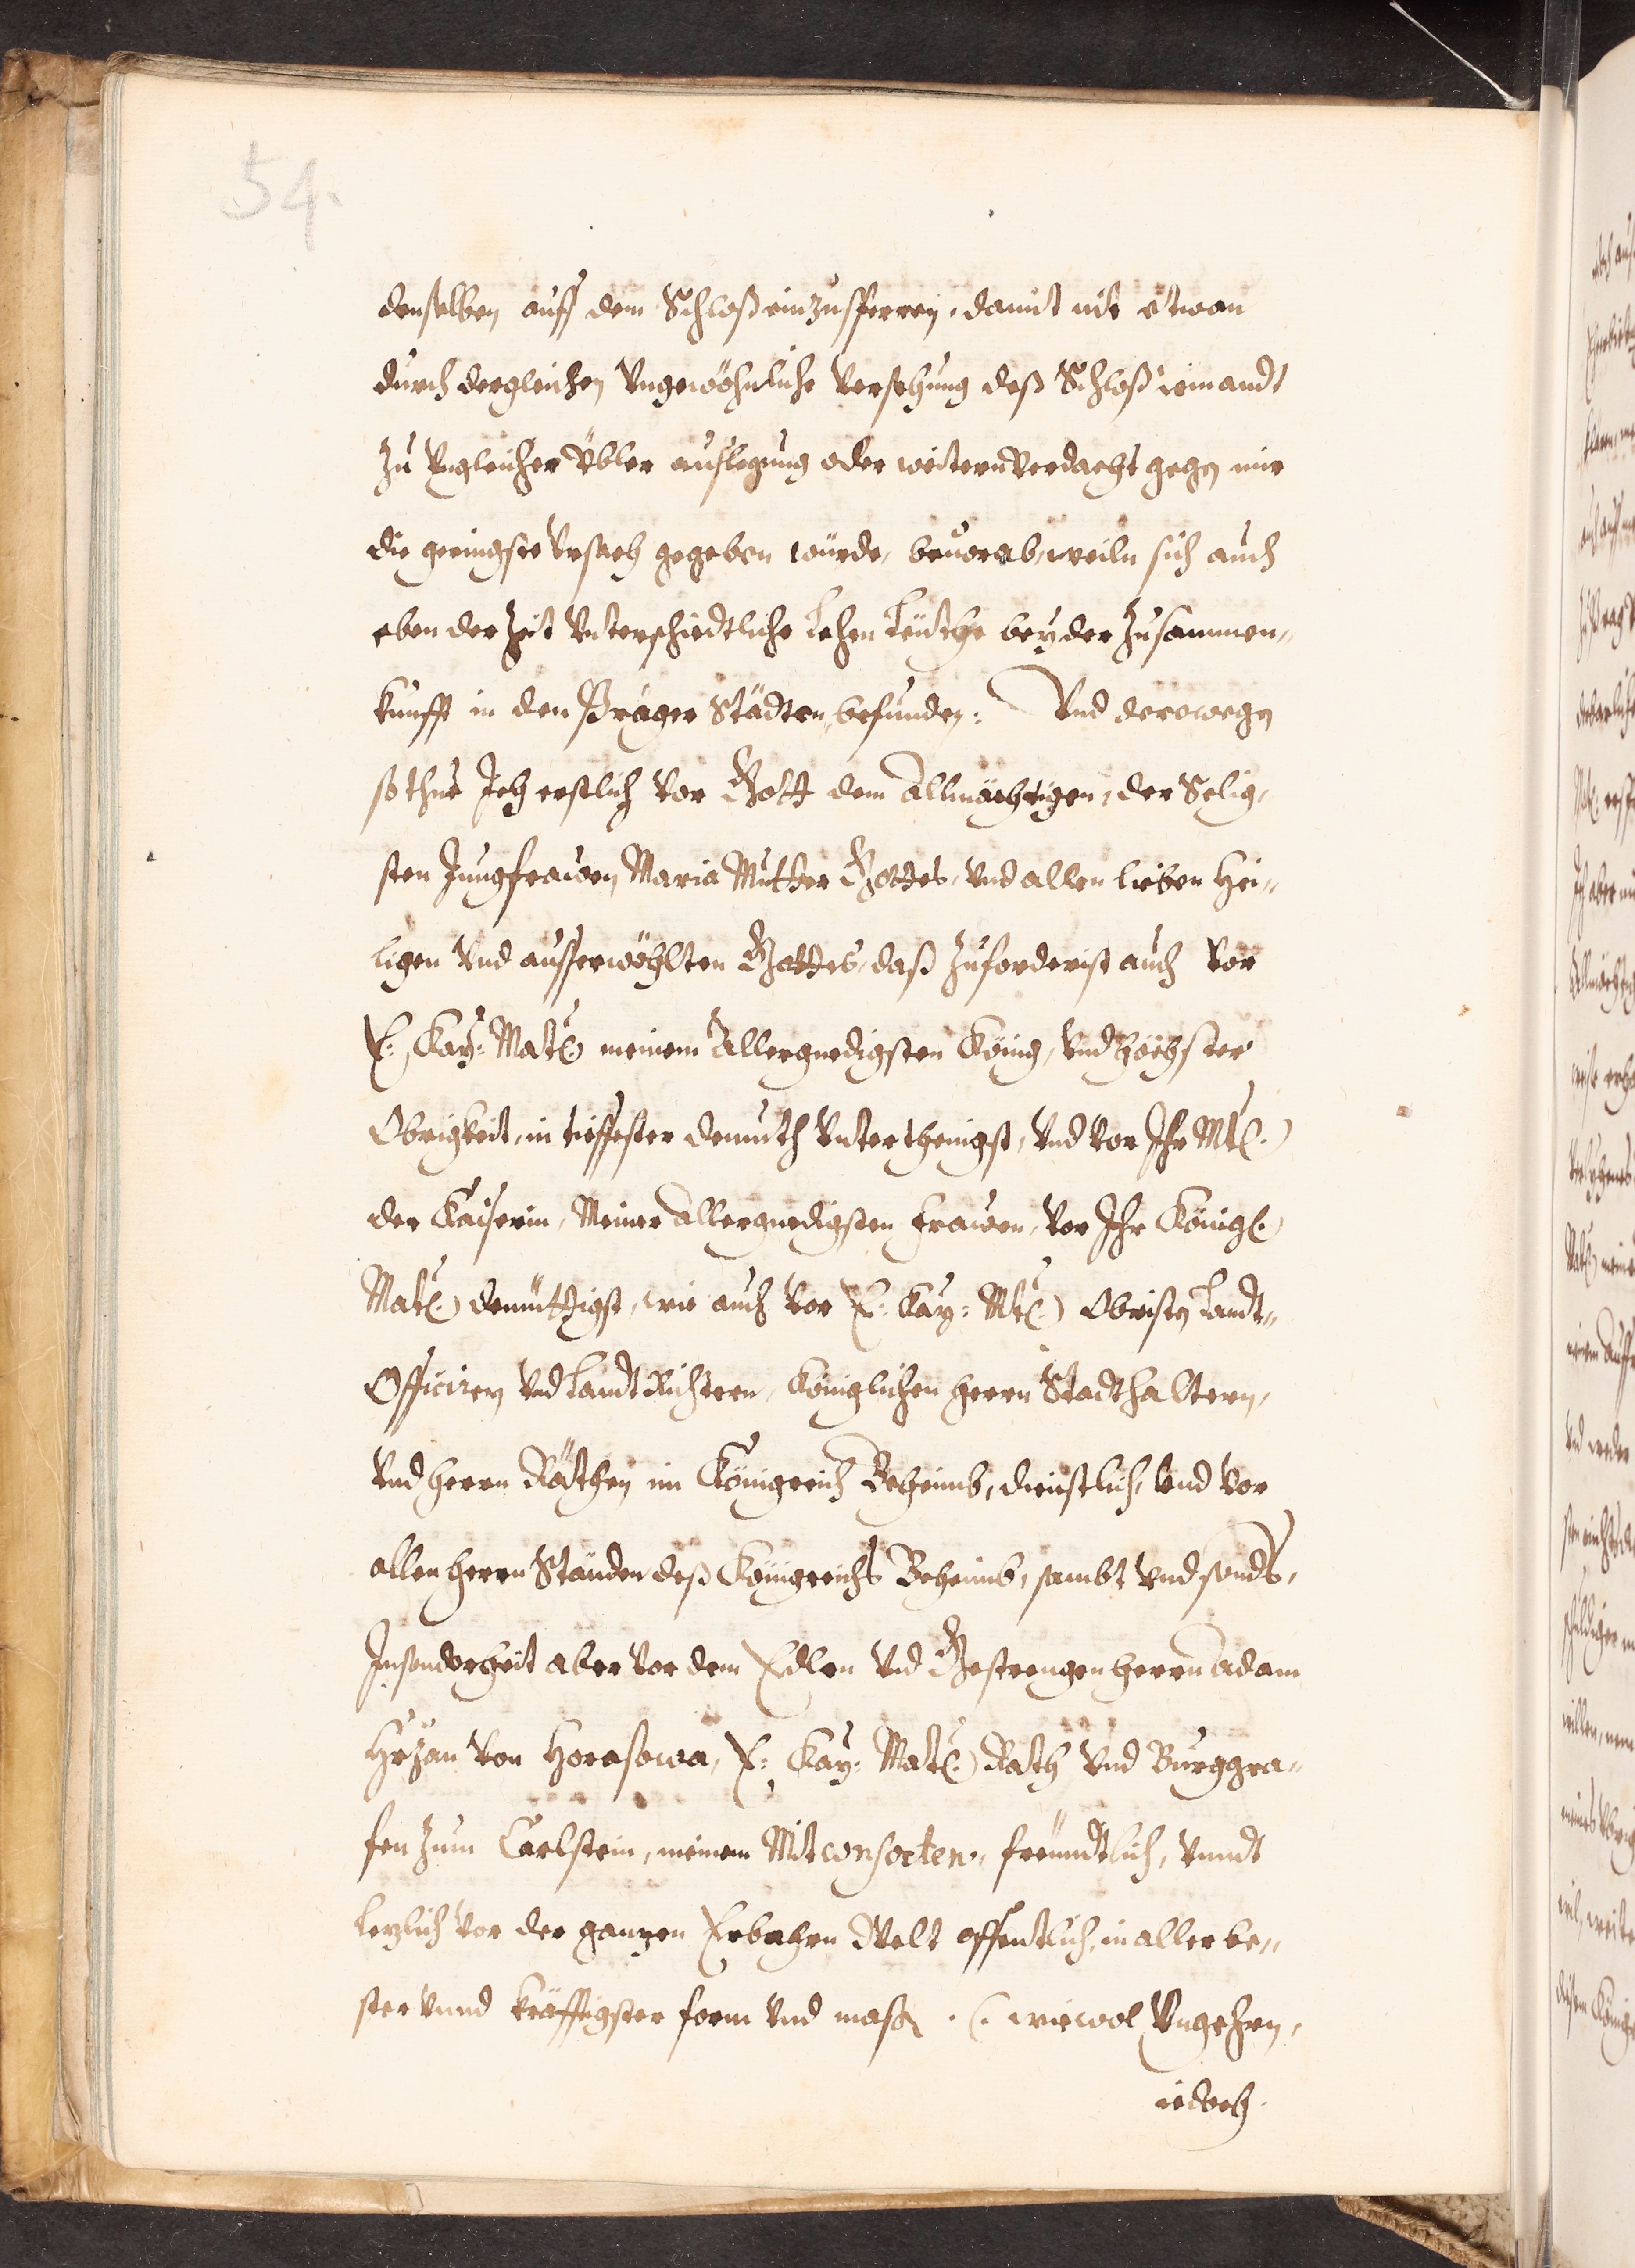 54.
denselben auff dem Schloß einzusperren, damit nit etwan
durch dergleichen Vngewöhnliche Versehung deß Schloß iemandt
zu Vngleicher Übler außlegung oder weitern Verdacht gegen mir
die geringste Vrsach gegeben würde, beuorab, weiln sich auch
eben der Zeit Vnterschiedtliche Lehen Leüthe bey der Zusammen„
kunfft in den Prager Städten befunden: Vnd derowegen
so thue Ich erstlich Vor Gott dem Allmächtigen, der Selig„
sten Jungfrawen Maria Mutter Gottes, Vnd allen lieben Hei„
ligen Vnd ausserwöhlten Gottes, daß zuforderist auch Vor
E: Kay: Matt: meinem Allergnedigsten König, Vnd höchster
Obrigkeit, in tieffester demuth Vnterthenigst, Vnd Vor Ihr Mtt:
der Kaiserin, Meiner Allergnedigsten Frawen, Vor Ihr Königl:
Matt: demüttigst, wie auch Vor E: Kay: Mtt: Obristen Landt„
Officiren Vnd Landt Richtern, Königlichen Herrn Stadthaltern,
Vnd Herrn Räthen im Königreich Beheimb, dienstlich, Vnd Vor
allen Herrn Ständen deß Königreichs Beheimb, sambt Vnd sonds,
Insonderheit aber Vor dem Edlen Vnd Gestrengen Herrn Adam
Hrzan Von Horasowa, E: Kay: Matt: Rath Vnd Burggra„
fen zum Carlstein, meinem Mitconsorten, freündtlich, Vnndt
lezlich Vor der ganzen Erbahrn Welt offentlich, in aller be„
ster Vnnd kräfftigster form Vnd mass, (: wiewol Vngehrn,
iedoch.